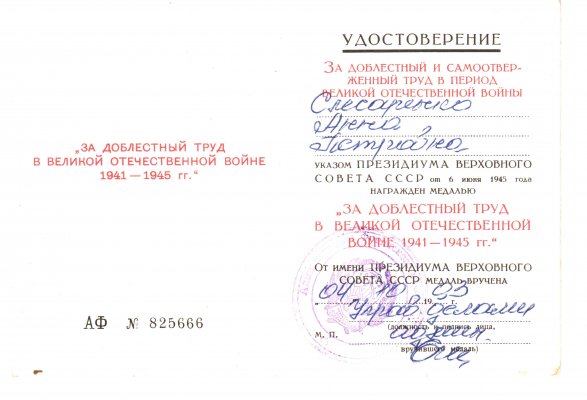 „ЗА ДОБЛЕСТНЫЙ ТРУД
В ВЕЛИКОЙ ОТЕЧЕСТВЕННОЙ ВОЙНЕ
1941—1945 гг.“
АФ № 825666
УДОСТОВЕРЕНИЕ
ЗА ДОБЛЕСТНЫЙ И САМООТВЕР-
ЖЕННЫЙ ТРУД В ПЕРИОД
ВЕЛИКОЙ ОТЕЧЕСТВЕННОЙ ВОЙНЫ
Слесаренко
Анна
УКАЗОМ ПРЕЗИДИУМА ВЕРХОВНОГО
СОВЕТА СССР от 6 июня 1945 года
НАГРАЖДЕН МЕДАЛЬЮ
„ЗА ДОБЛЕСТНЫЙ ТРУД
В ВЕЛИКОЙ ОТЕЧЕСТВЕННОЙ
ВОЙНЕ 1941—1945 гг.“
ОТ ИМЕНИ ПРЕЗИДИУМА ВЕРХОВНОГО
СОВЕТА СССР МЕДАЛЬ ВРУЧЕНА
04 10 19 93
Управ. делами
(должность и подпись лица,
М. П.
вручившего медаль)